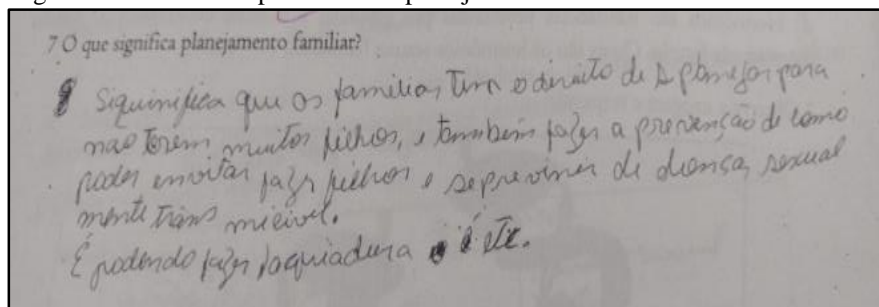 7 O que significa planejamento familiar?
Siquinifica que os familias tem o direito de se planejar para
nao terem muitos filhos, e tambem fazer a prevensão de como
poder envitar fazer filhos e se prevenir de doença sexual
mente trans micivel.
É podendo fazer laquiadura e etc.